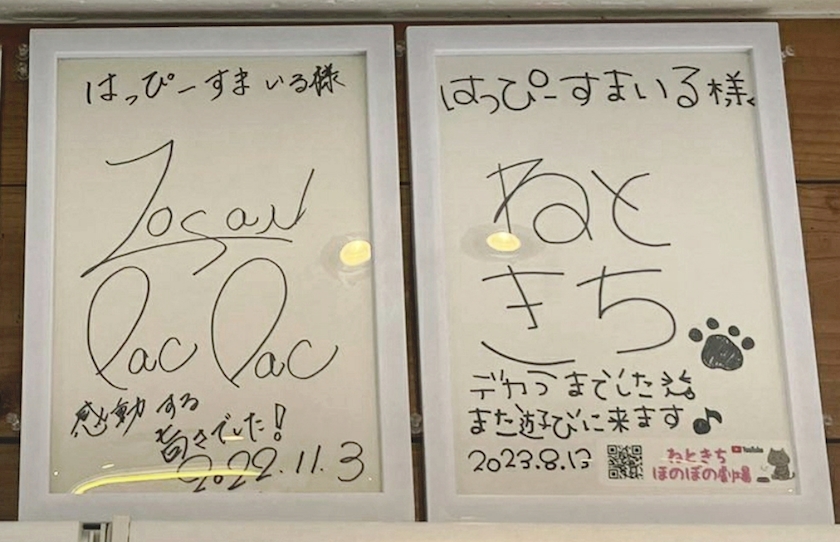 はっぴーすまいる様
Zosan
PacPac
感動する
旨さでした!
2022.11.3
はっぴーすまいる様
ねと
きち
デカうまでした
また遊びに来ます♪
2023.8.13
YouTube
ねときち
ほのぼの劇場